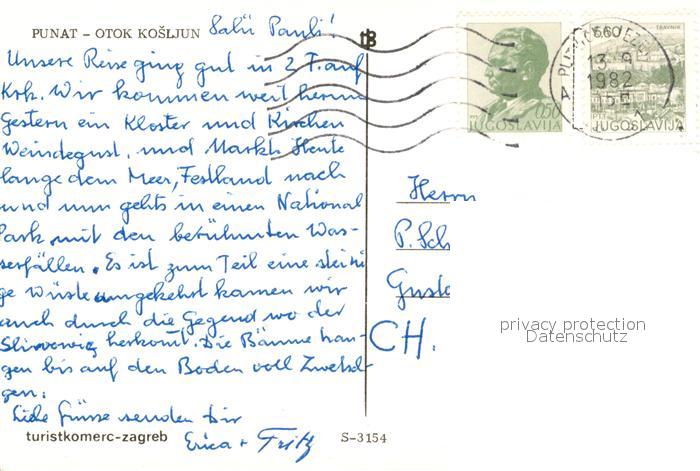 PUNAT – OTOK KOŠLJUN
Salü Pauli!
Unsere Reise ging gut in 2 T. auf
Krk. Wir kommen weit herum
Gestern ein Kloster und Kirchen
Weindegust. und Markt. Heute
lange dem Meer, Festland nach
und nun gehts in einen National
Park mit den berühmten Was-
serfällen. Es ist zum Teil eine steini
ge Wüste umgekehrt kamen wir
auch durch die Gegend wo der
Sliwowiz herkomt. Die Bäume han-
gen bis auf den Boden voll Zwetsch-
gen.
Liebe Grüsse senden Dir
Erica + Fritz
turistkomerc-zagreb
S-3154
0.50
JUGOSLAVIJA
TRAVNIK
JUGOSLAVIJA
13 9
1982
Herrn
P. Sch
CH.
privacy protection
Datenschutz